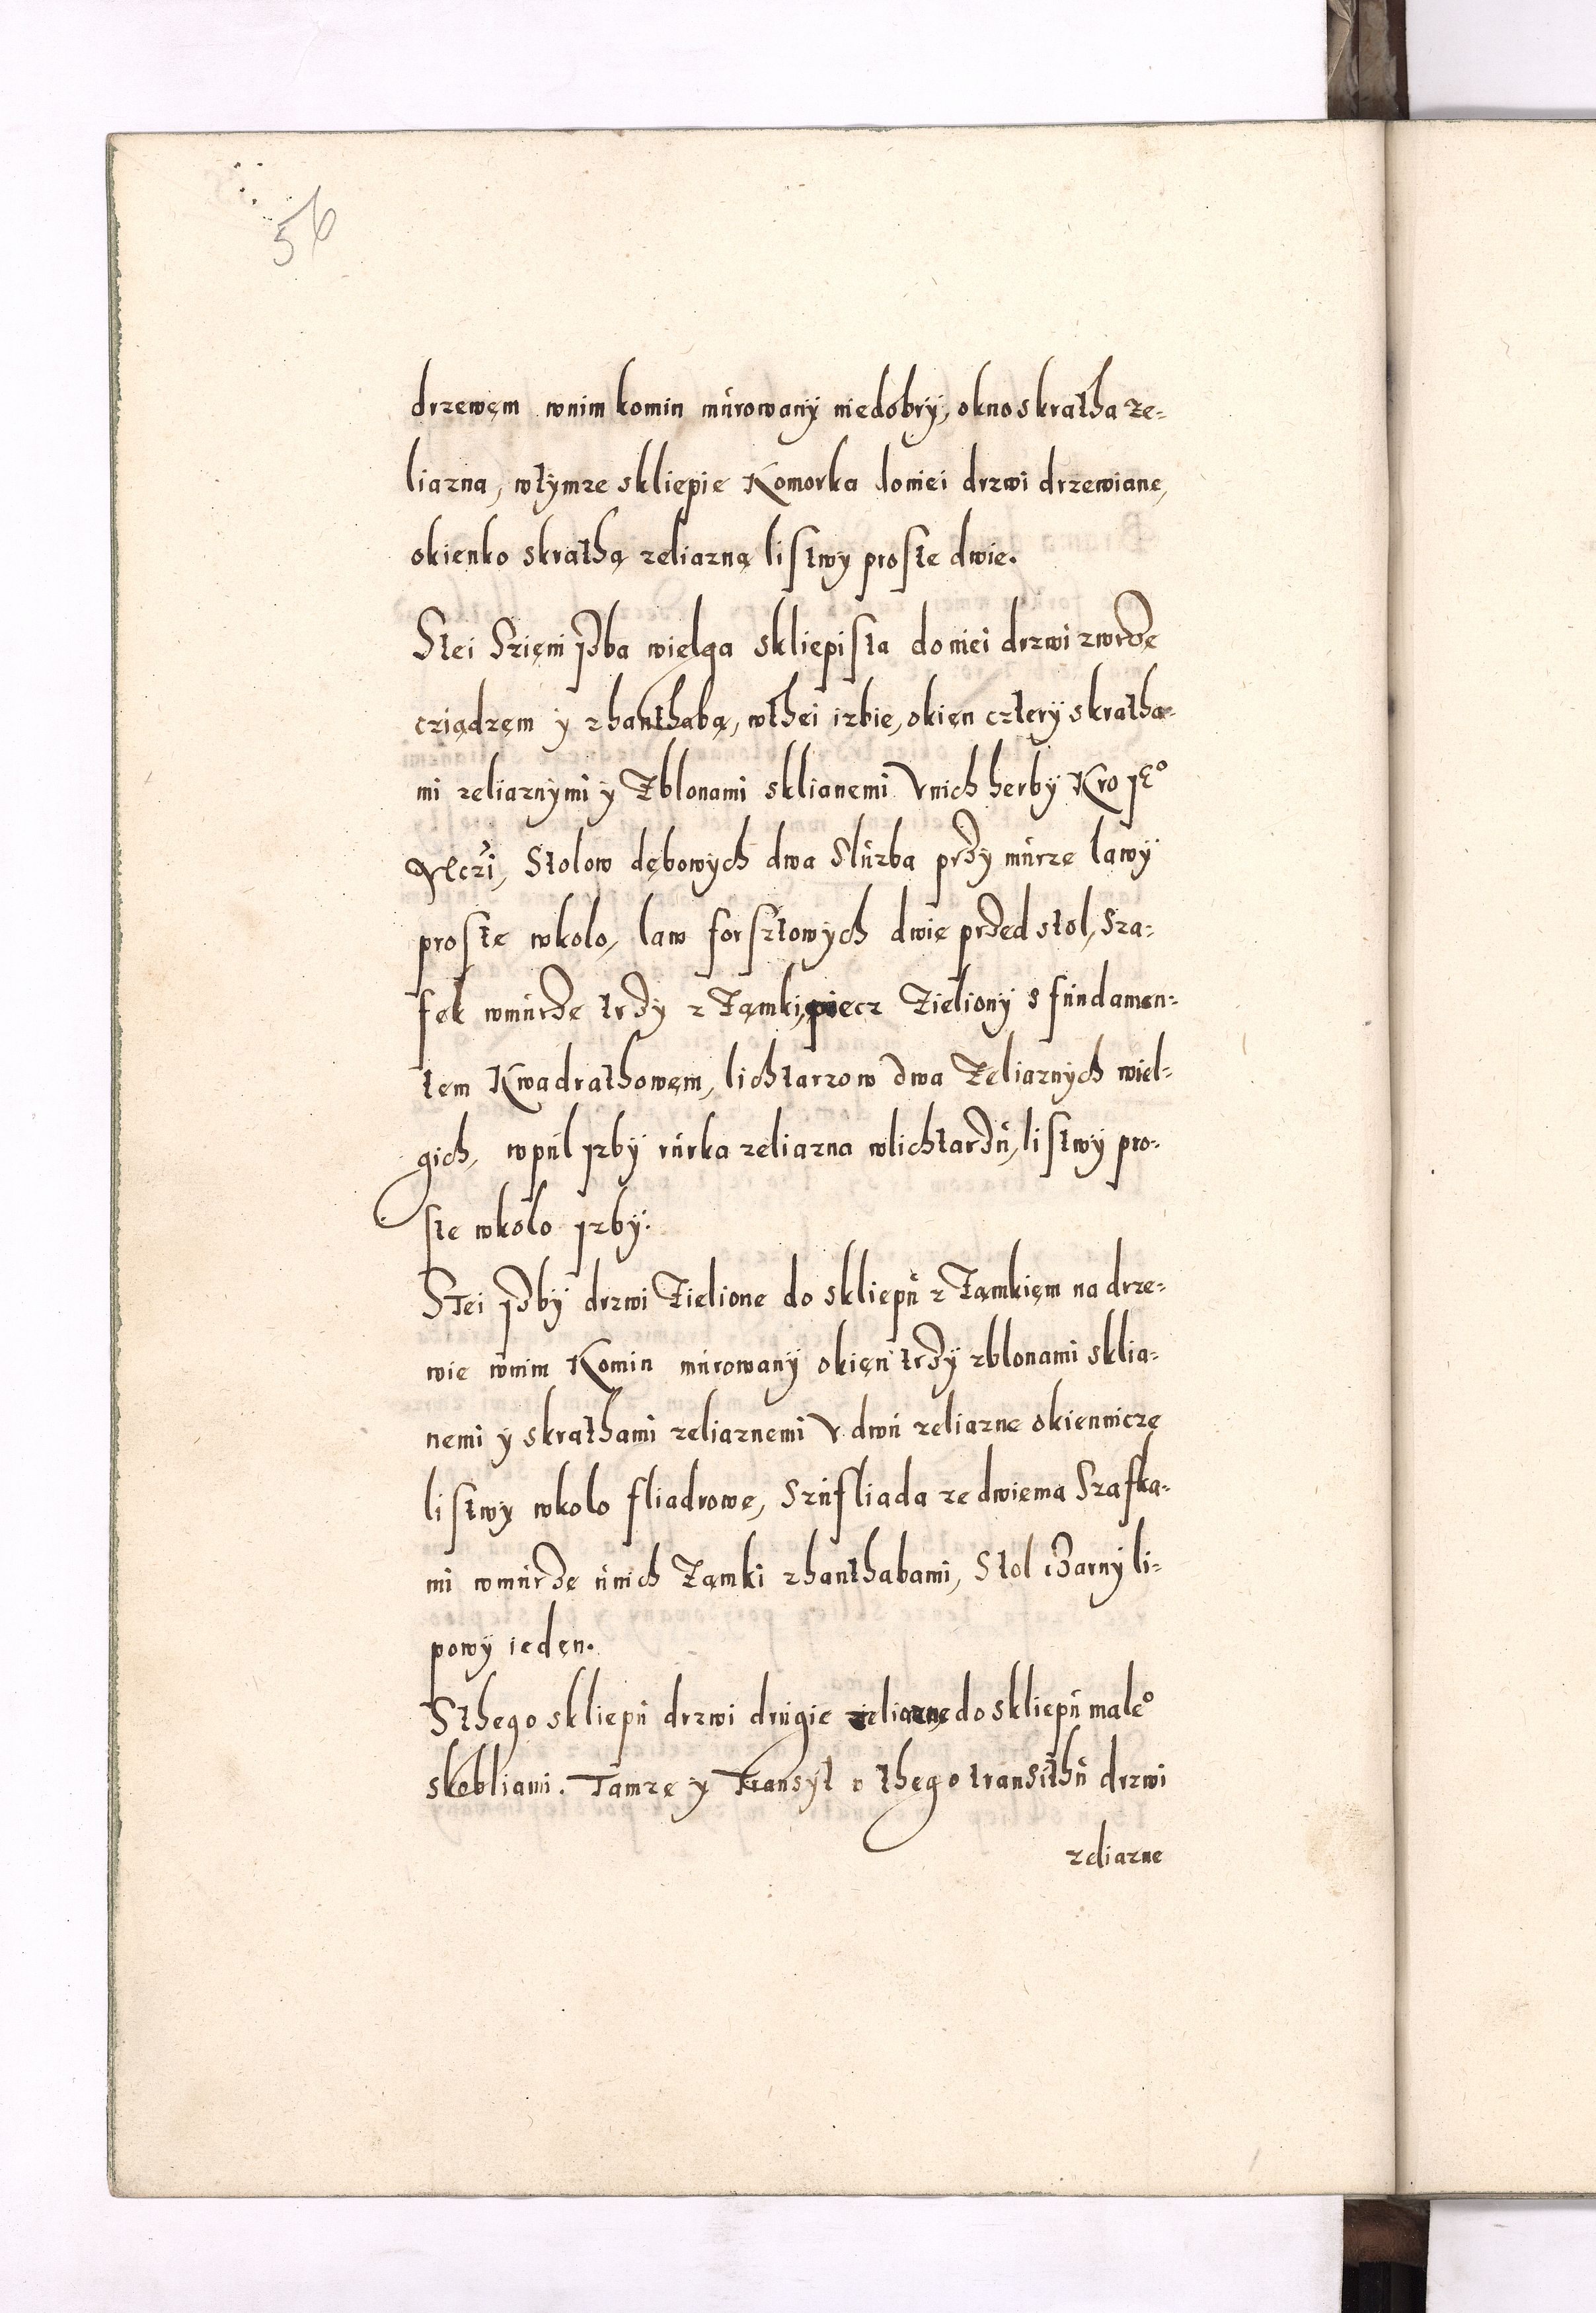 56
drzewęm wnim komin murowany niedobry, okno skratha ze-
liazna, wtymze skliepie Komorka doniei drzwi drzewiane,
okienko skrathą zeliazną listwy proste dwie.
Stei Szięni jzba wielga skliepista do niei drzwi zwrzę
cziądzęm y zhanthabą, wthei izbie, okięn cztery skratha-
mi zeliaznymi y Zblonami sklianemi Vnich herby Kro Je°
Stolow dębowych dwa Sluzba przy murze lawy
proste wkolo, law forsztowych dwie przed stol, Sza-
fek wmurze trzy z Zamki, piecz Zieliony s fundamen-
tem Kwadrathowęm, lichtarzow dwa Zeliaznych wiel-
gich, wpul jzby rurka zeliazna wlichtarzu, listwy pro-
ste wkolo jzby.
Stei jzby drzwi Zielione do skliepu z Zamkięm na drze-
wie wnim Komin murowany okięn trzy zblonami sklia-
nemi y skrathami zeliaznemi V dwu zeliazne okiennicze
listwy wkolo fliadrowe, Szufliada ze dwiema Szafka-
mi wmurze unich Zamki zhanthabami, Stol czarny li-
powy iedęn.
Sthego skliepu drzwi drugie zeliazne do skliepu male°
skobliami. Tamze y Transyt v thego transithu drzwi
zeliazne